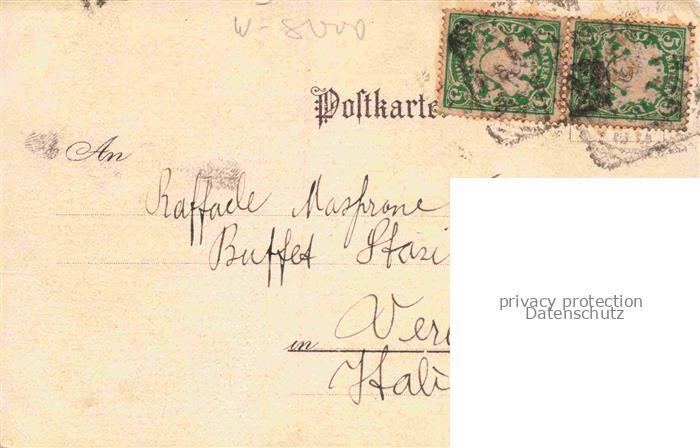 W-8000
Postkarte
An
Raffaele Masprone
Buffet Stazi
Vero
in
Itali
privacy protection
Datenschutz